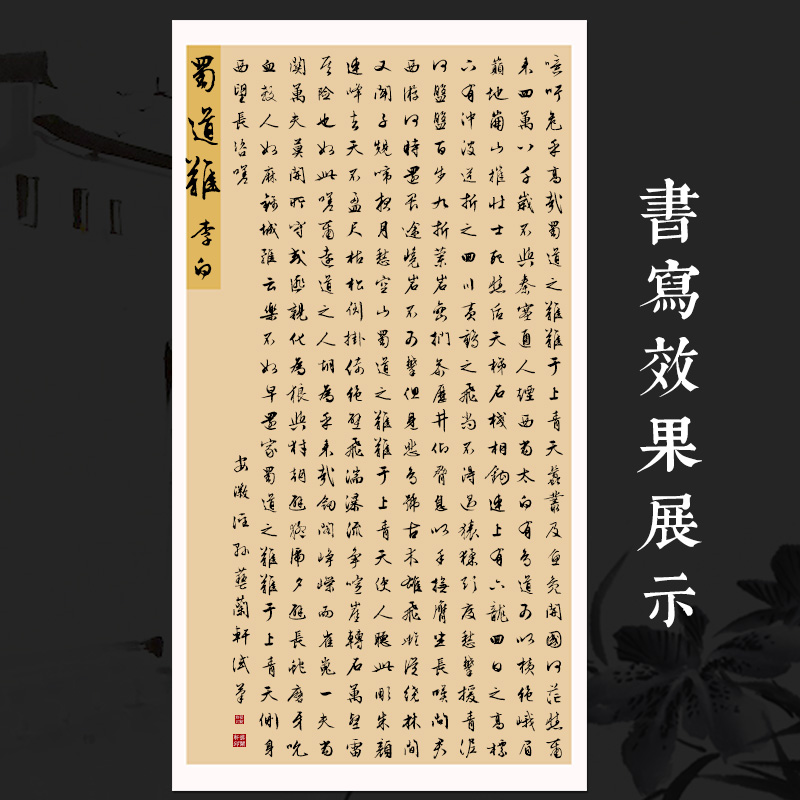 蜀道難 李白
噫吁危乎高哉蜀道之難難于上青天蠶叢及魚鳧開國何茫然爾
來四萬八千歲不與秦塞通人煙西當太白有鳥道可以橫絕峨眉
巔地崩山摧壯士死然后天梯石棧相鉤連上有六龍回日之高標
下有沖波逆折之回川黃鶴之飛尚不得過猿猱欲度愁攀援青泥
何盤盤百步九折縈岩巒捫參歷井仰脅息以手撫膺坐長嘆問君
西游何時還畏途巉岩不可攀但見悲鳥號古木雄飛雌從繞林間
又聞子規啼夜月愁空山蜀道之難難于上青天使人聽此凋朱顏
連峰去天不盈尺枯松倒掛倚絕壁飛湍瀑流爭喧崖轉石萬壑雷
其险也如此嗟爾遠道之人胡為乎來哉劍閣崢嶸而崔嵬一夫當
關萬夫莫開所守或匪親化為狼與豺朝避猛虎夕避長蛇磨牙吮
血殺人如麻錦城雖云樂不如早還家蜀道之難難于上青天側身
西望長咨嗟
安徽涇孫藝蘭軒試筆
書寫效果展示